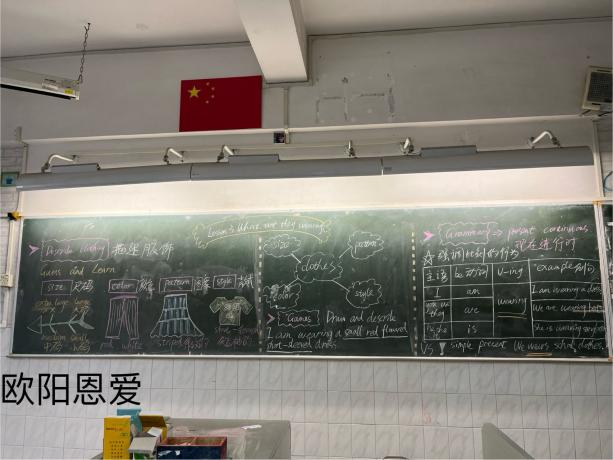 Lesson 3 What are they wearing
Describe clothing 描述服饰
Guess and Learn
size 尺码 color 颜色 pattern 图案 style 款式
extra large large
medium small
中码
red white striped
size pattern
clothes
color style
Games: Draw and describe
I am wearing a small red flowered
short-sleeved dress.
Grammar => present continuous
现在进行时
强调此刻的行为
主语 be动词 V-ing example 例句
I am wearing I am wearing a dress
you we they are We are wearing
he she is She is wearing
VS simple present We wear school clothes.
欧阳恩爱